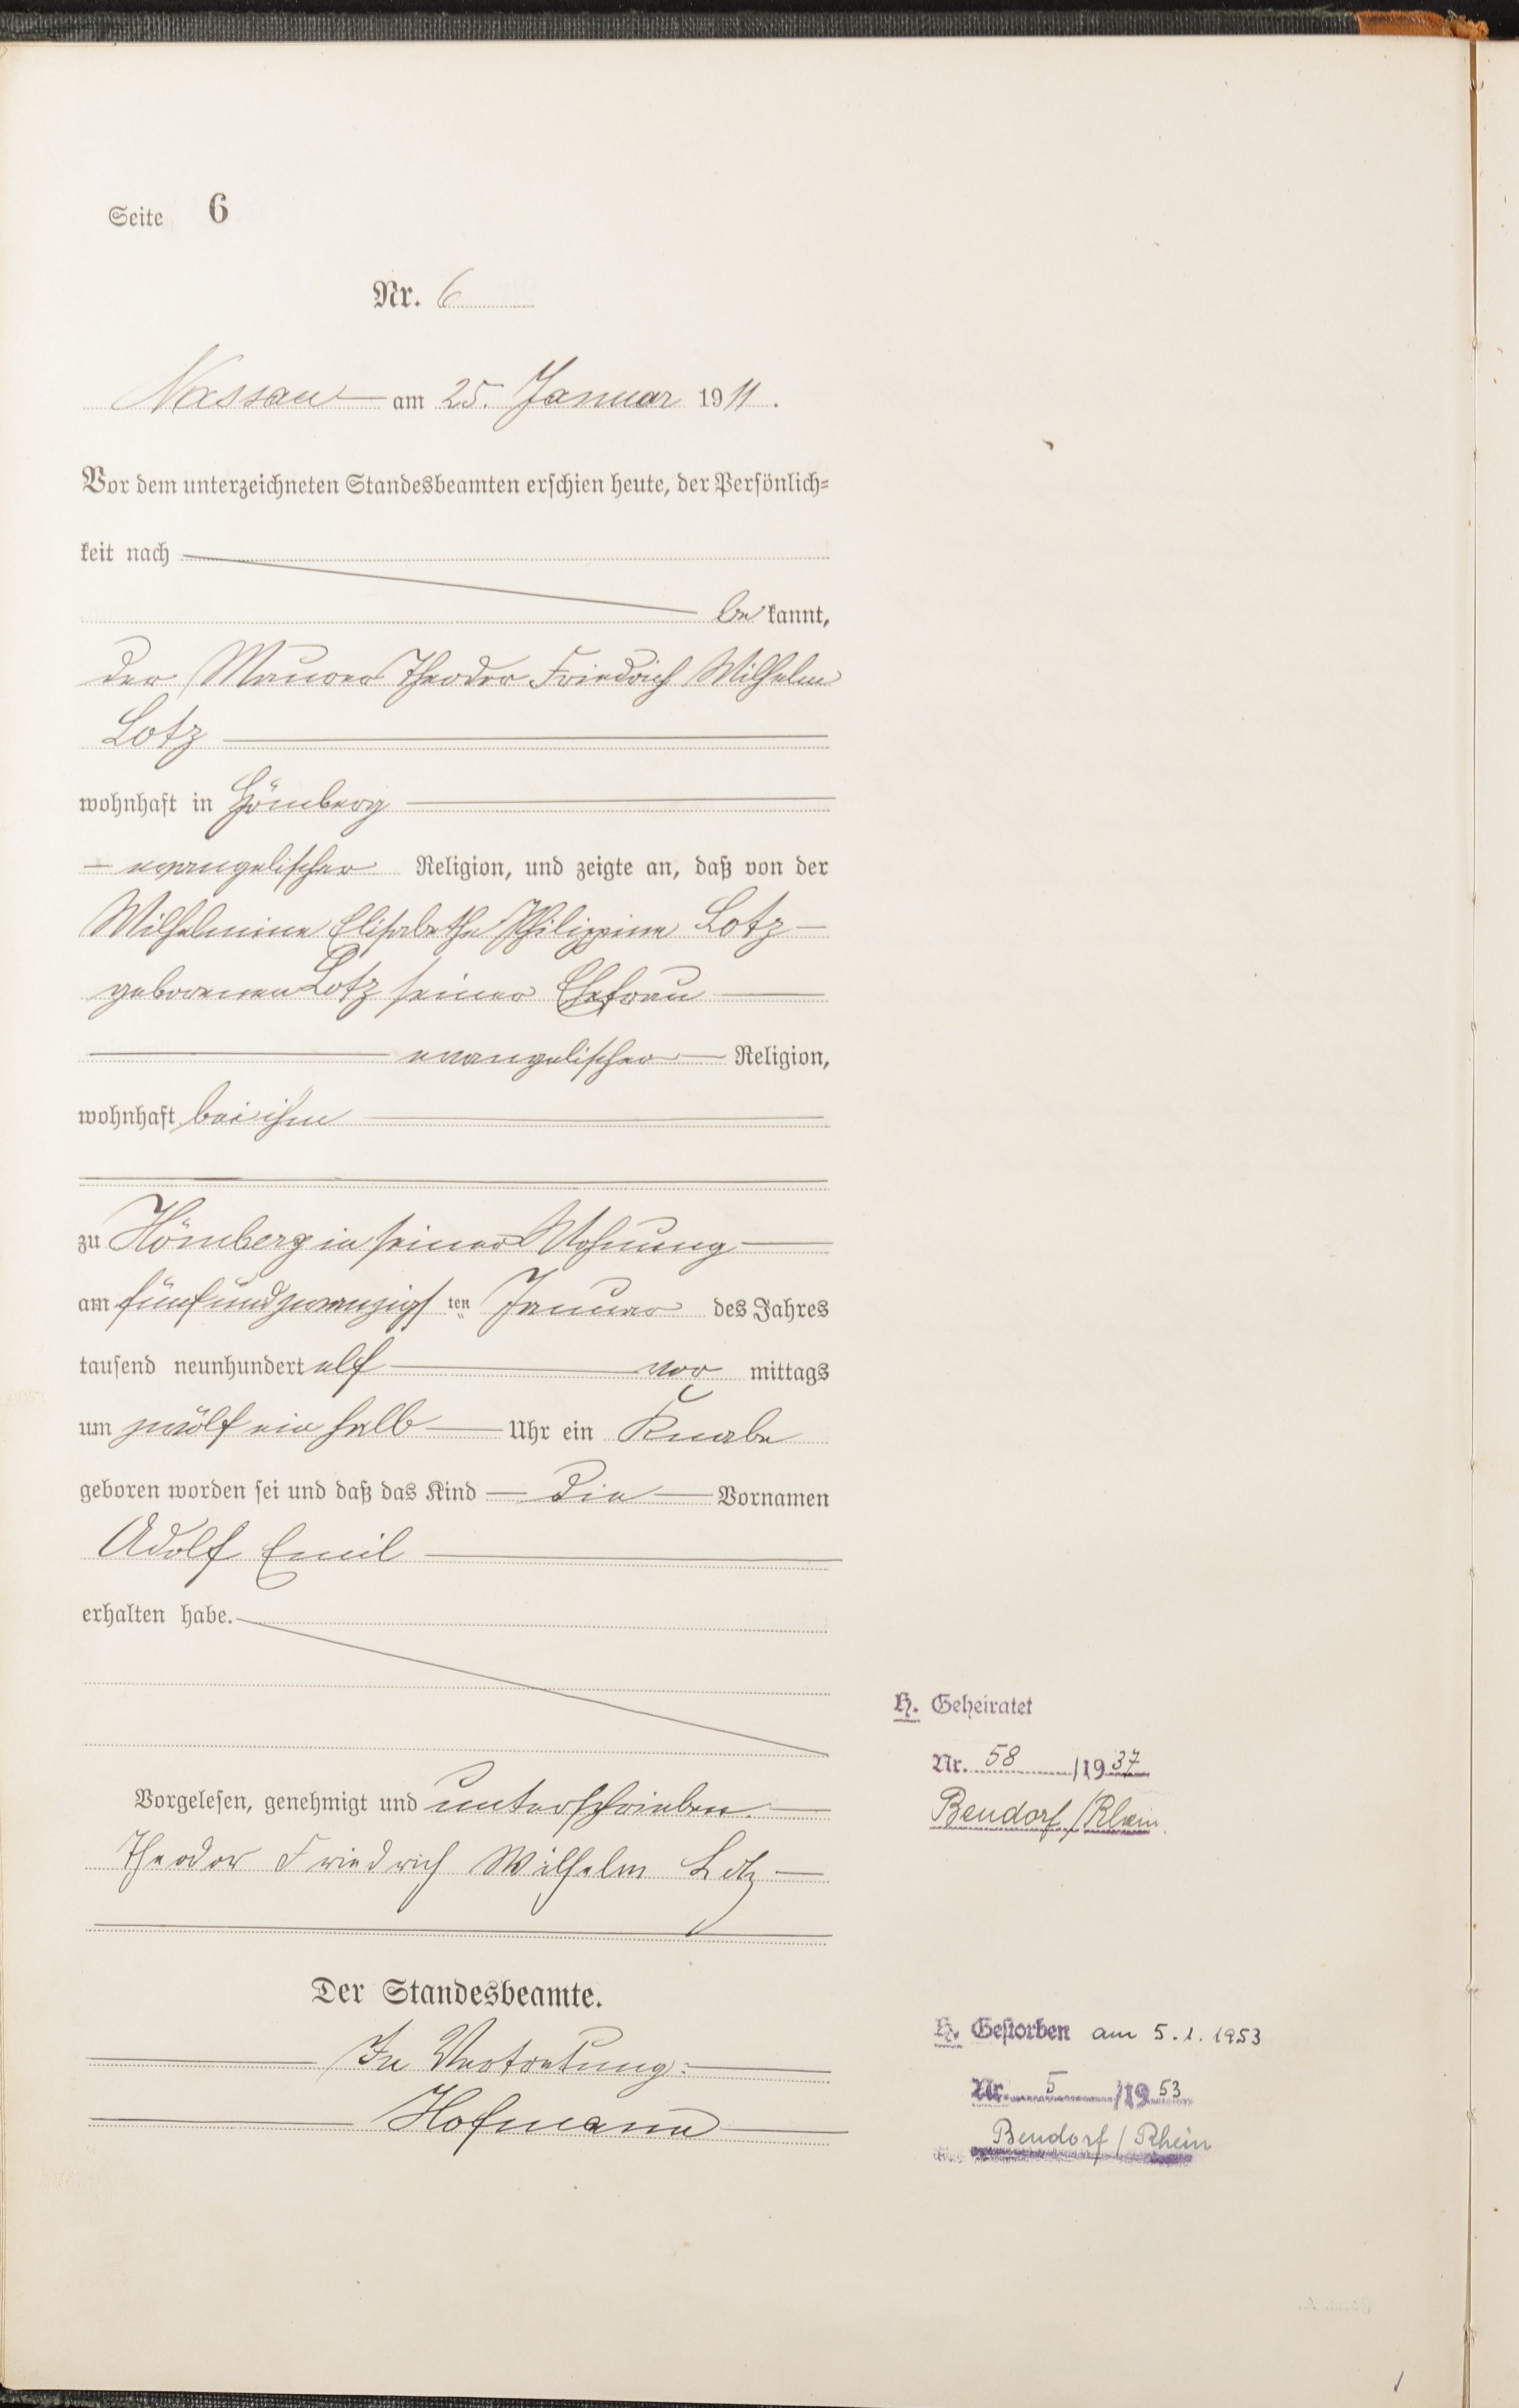 Seite 6
Nr. 6
Nassau am 25. Januar 1911.
Vor dem unterzeichneten Standesbeamten erschien heute, der Persönlich-
keit nach
bekannt,
der Maurer Theodor Friedrich Wilhelm
Lotz
wohnhaft in Hömberg
evangelischer Religion, und zeigte an, daß von der
Wilhelmine Elisabethe Philippine Lotz
geborenen Lotz seiner Ehefrau
evangelischer Religion,
wohnhaft bei ihm
zu Hömberg in seiner Wohnung
am fünfundzwanzigsten Januar des Jahres
tausend neunhundert elf vor mittags
um zwölf ein halb Uhr ein Knabe
geboren worden sei und daß das Kind die Vornamen
Adolf Emil
erhalten habe.
Vorgelesen, genehmigt und unterschrieben.
Theodor Friedrich Wilhelm Lotz
Der Standesbeamte.
In Vertretung:
Hofmann
H. Geheiratet
Nr. 58 /1937
Bendorf/Rhein.
H. Gestorben am 5.1.1953
Nr. 5 /1953
Bendorf/Rhein